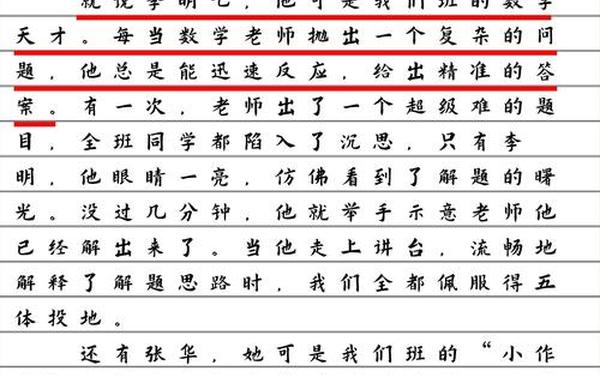 就说李明吧，他可是我们班的数学
天才。每当数学老师抛出一个复杂的问
题，他总是能迅速反应，给出精准的答
案。有一次，老师出了一个超级难的题
目，全班同学都陷入了沉思，只有李
明，他眼睛一亮，仿佛看到了解题的曙
光。没过几分钟，他就举手示意老师他
已经解出来了。当他走上讲台，流畅地
解释了解题思路时，我们全都佩服得五
体投地。
还有张华，她可是我们班的“小作